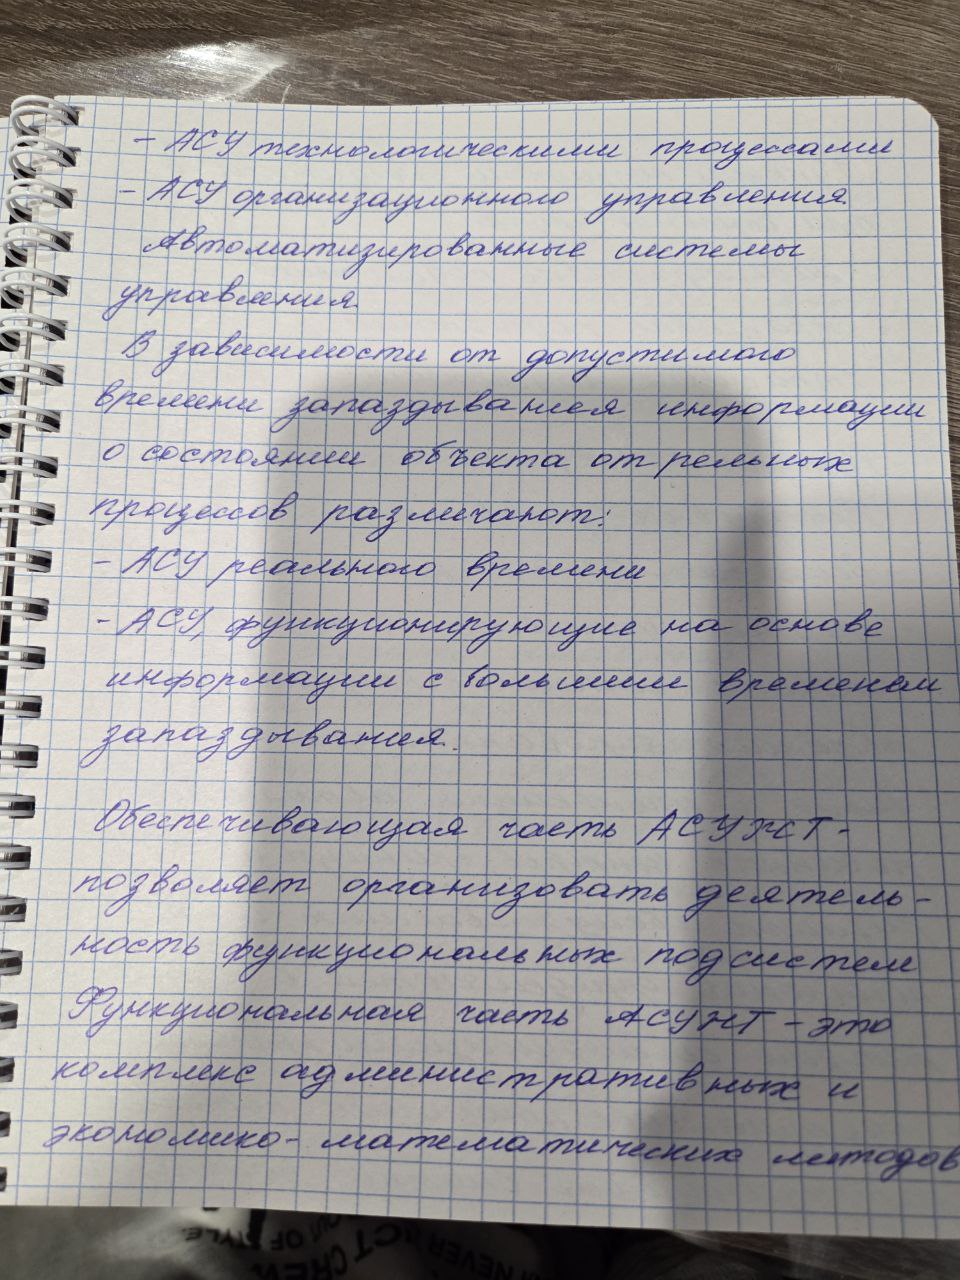 - АСУ технологическими процессами
- АСУ организационного управления.
Автоматизированные системы
управления.
В зависимости от допустимого
времени запаздывания информации
о состоянии объекта от рельных
процессов различают:
- АСУ реального времени
- АСУ, функционирующие на основе
информации с большим временем
запаздывания.
Обеспечивающая часть АСУЖТ -
позволяет организовать деятель-
ность функциональных подсистем
Функциональная часть АСУЖТ - это
комплекс административных и
экономико- математических методов
OUT OF STYLE
NEVER